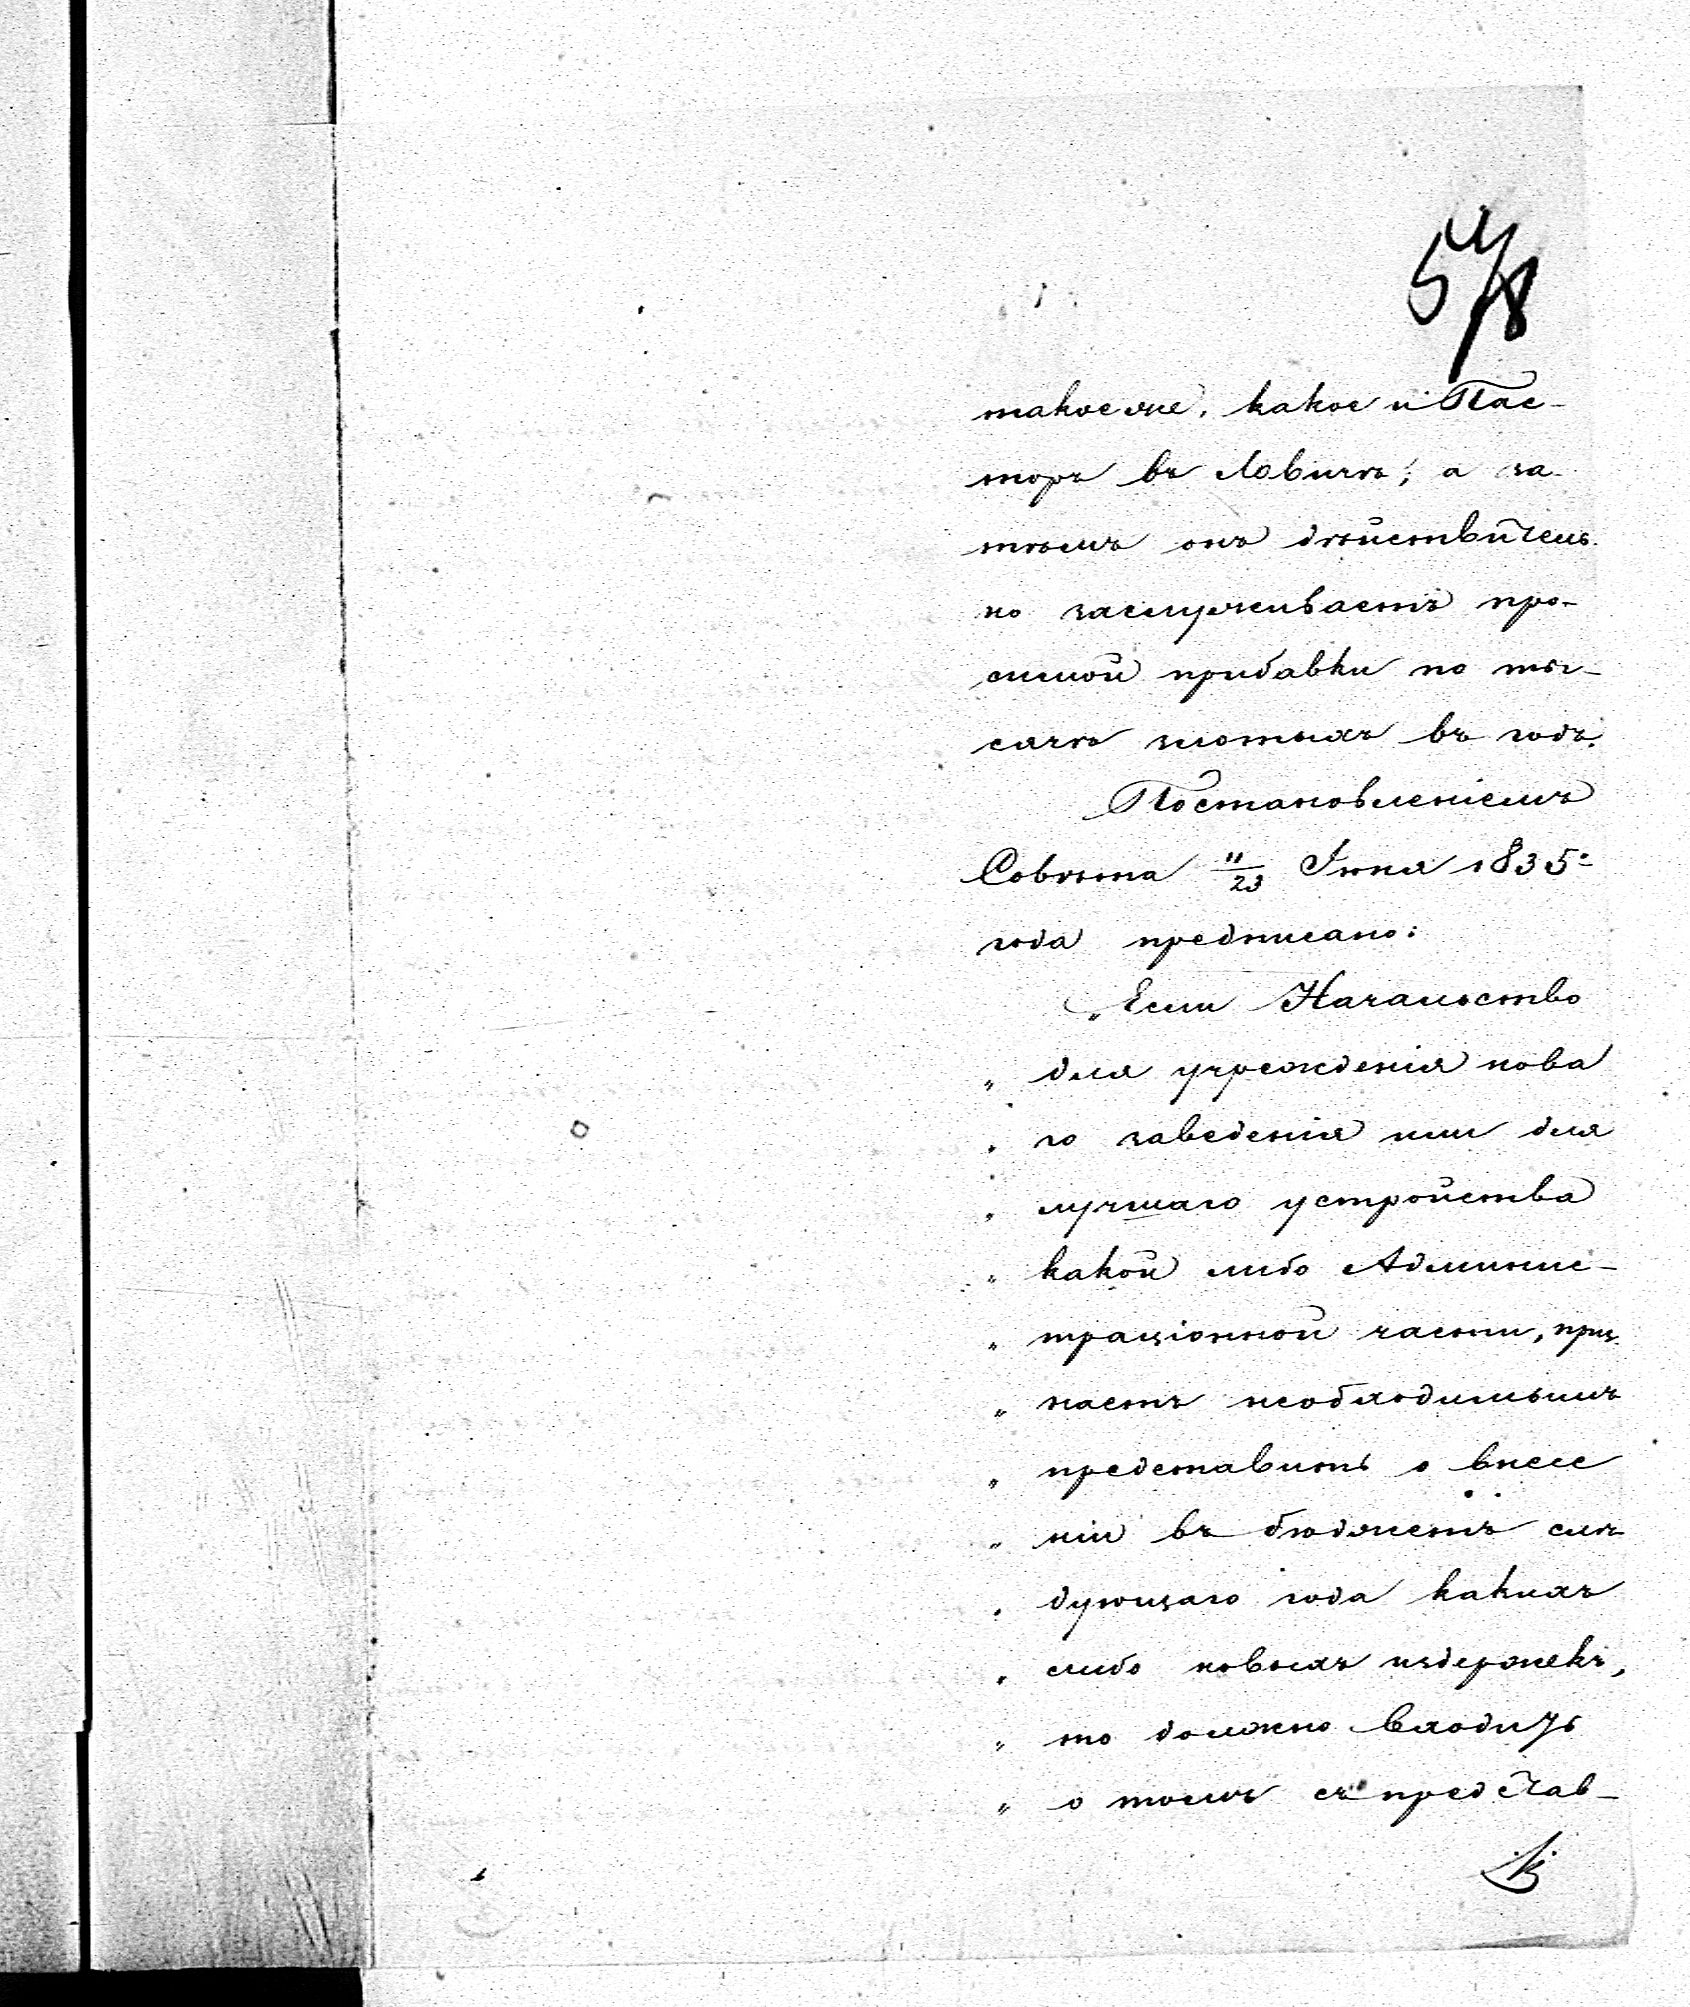 такое же, какое и Пас-
торъ въ Ловичѣ; а за
тѣмъ онъ дѣйствитель-
но заслуживаетъ про-
симой прибавки по ты-
сячѣ злотыхъ въ годъ.
Постановленіемъ
Совѣта 11/23 Іюня 1835.
года предписано:
„Если Начальство
„ для учрежденія нова
„ го заведенія или для
„ лучшаго устройства
„ какой либо Админис-
„ траціонной части, приз-
„ наетъ необходимымъ
„ представить о внесе
„ ніи въ бюджетъ слѣ
„ дующаго года какихъ
„ либо новыхъ издержекъ,
„ то должно входить
„ о томъ съ представ-